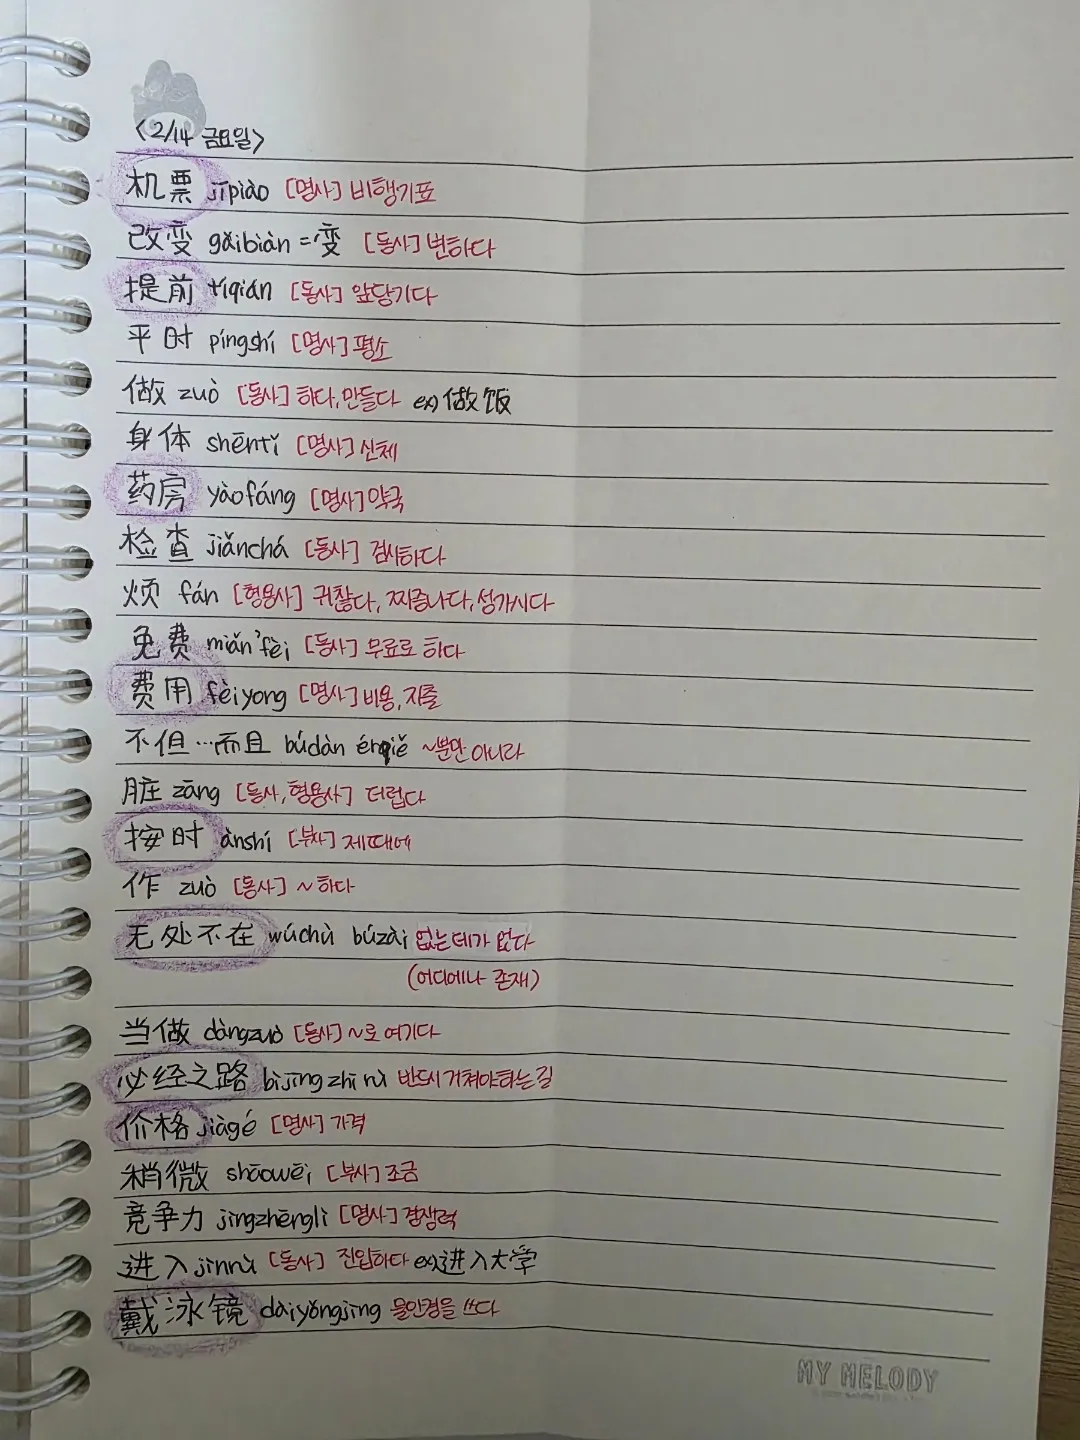 <2/14 금요일>
机票 jīpiào [명사] 비행기표
改变 gǎibiàn = 变 [동사] 변하다
提前 tíqián [동사] 앞당기다
平时 píngshí [명사] 평소
做 zuò [동사] 하다, 만들다 ex) 做饭
身体 shēntǐ [명사] 신체
药房 yàofáng [명사] 약국
检查 jiǎnchá [동사] 검사하다
烦 fán [형용사] 귀찮다, 짜증나다, 성가시다
免费 miǎn'fèi [동사] 무료로 하다
费用 fèiyong [명사] 비용, 지출
不但…而且 búdàn érqiě ~뿐만 아니라
脏 zāng [동사, 형용사] 더럽다
按时 ànshí [부사] 제때에
作 zuò [동사] ~하다
无处不在 wúchù búzài 없는데가 없다
(어디에나 존재)
当做 dàngzuò [동사] ~로 여기다
必经之路 bìjīng zhī lù 반드시 거쳐야하는 길
价格 jiàgé [명사] 가격
稍微 shāowēi [부사] 조금
竞争力 jìngzhēnglì [명사] 경쟁력
进入 jìnrù [동사] 진입하다 ex) 进入大学
戴泳镜 dàiyǒngjìng 물안경을 쓰다
MY MELODY